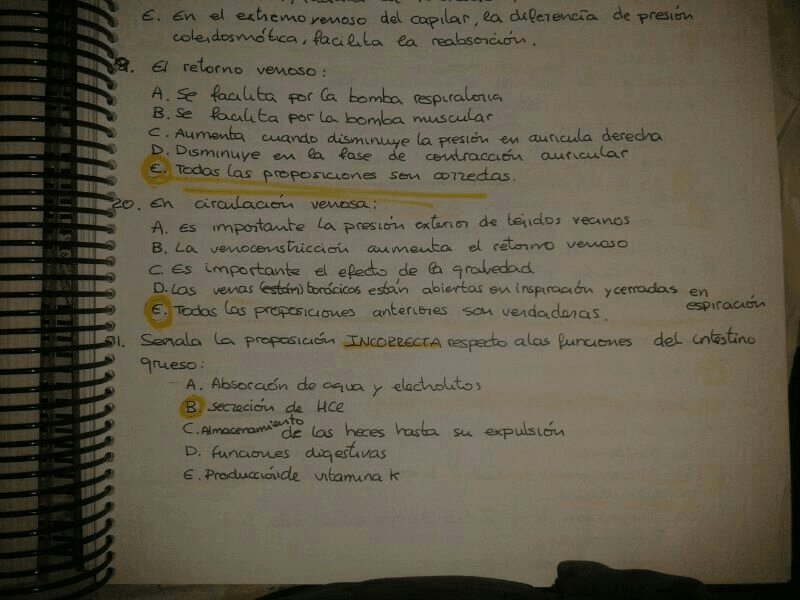 E. En el extremo venoso del capilar, la diferencia de presión
coloidosmótica, facilita la reabsorción.
9. El retorno venoso:
A. Se facilita por la bomba respiratoria
B. Se facilita por la bomba muscular
C. Aumenta cuando disminuye la presión en aurícula derecha
D. Disminuye en la fase de contracción auricular
E. Todas las proposiciones son correctas.
20. En circulación venosa:
A. Es importante la presión exterior de tejidos vecinos
B. La venoconstricción aumenta el retorno venoso
C. Es importante el efecto de la gravedad
D. Las venas (están) torácicas están abiertas en inspiración y cerradas en
espiración
E. Todas las proposiciones anteriores son verdaderas.
11. Señala la proposición INCORRECTA respecto a las funciones del intestino
grueso:
A. Absorción de agua y electrolitos
B. Secreción de HCl
C. Almacenamiento de las heces hasta su expulsión
D. Funciones digestivas
E. Producción de vitamina K